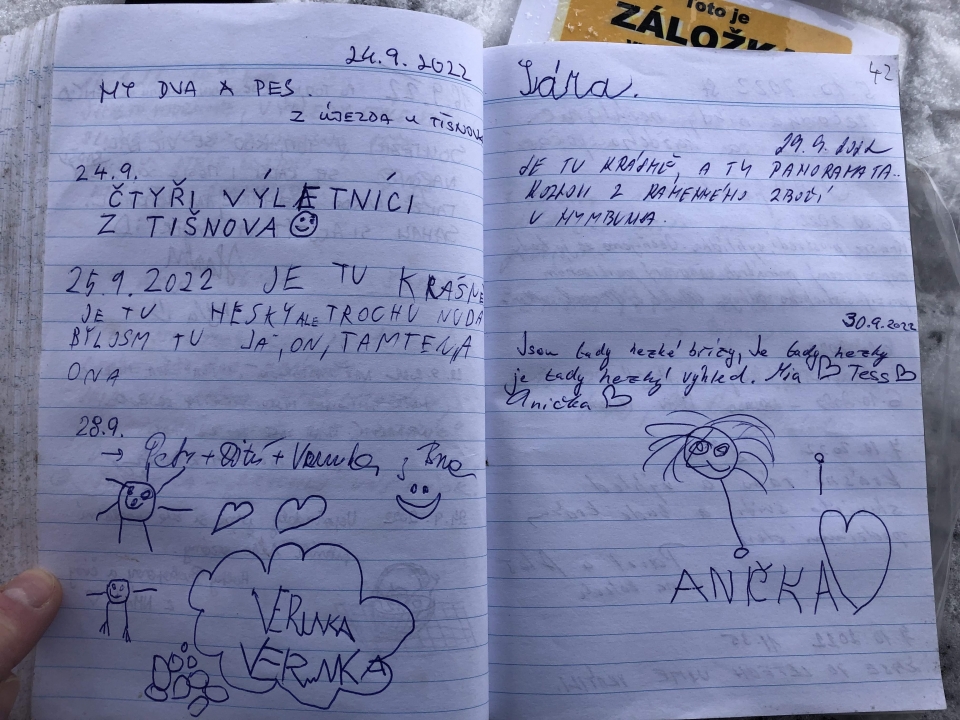 24.9.2022
MY DVA A PES.
Z ÚJEZDA U TIŠNOVA
24.9.
ČTYŘI VÝLETNÍCI
Z TIŠNOVA
25.9.2022 JE TU KRÁSNĚ
JE TU HESKY ALE TROCHU NUDA
BYLJSM TU JA, ON, TAMTEN, A
ONA
28.9.
→ Petr + + Verunka, z Brna
VERUNKA
VERUNKA
Toto je
ZÁLOŽK
42
Sára.
29.9.2022
JE TU KRÁSNĚ, A TY PANORAMATA..
Z KAMENNÉHO ZBOŽÍ
U NYMBURKA.
30.9.2022
Jsou tady hezké břízy, Je tady hezky
je tady hezký výhled. Mia Tess
Anička
ANIČKA